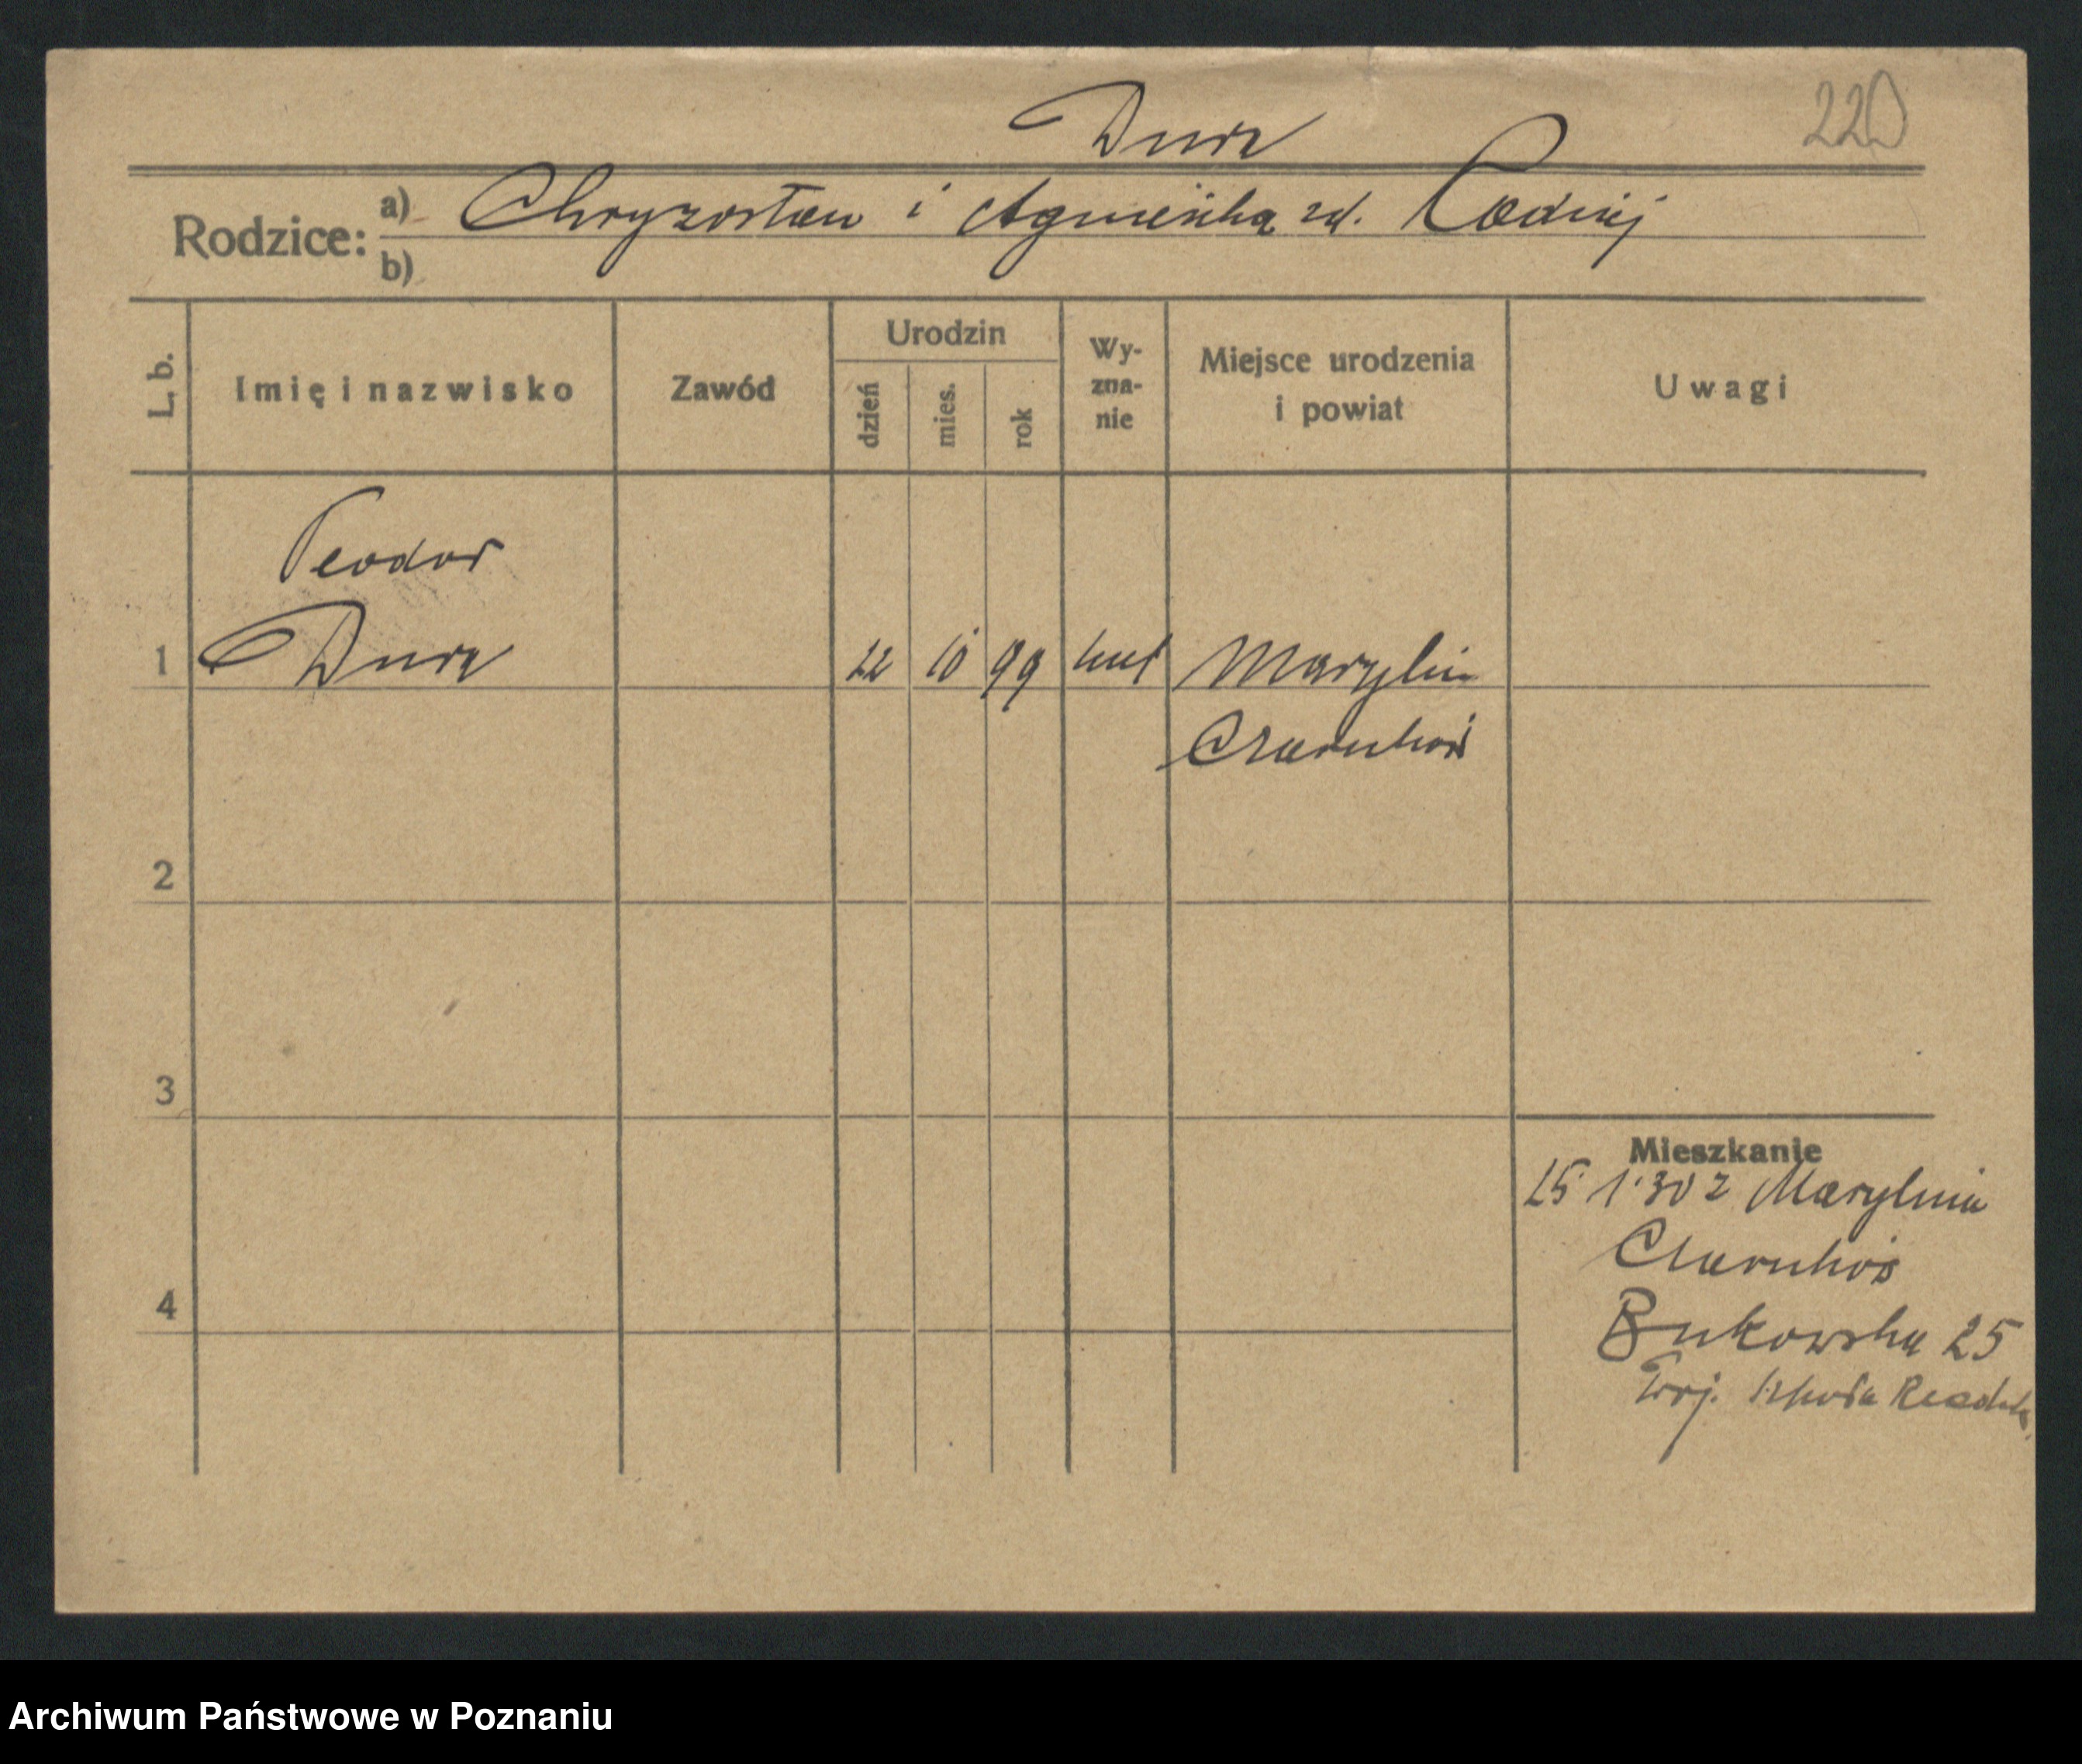 Durz
220
Rodzice: a) Chryzostom i Agnieszka zd. Lodziej
b)
L. b.
Imię i nazwisko
Zawód
Urodzin
dzień
mies.
rok
Wy-
zna-
nie
Miejsce urodzenia
i powiat
Uwagi
Teodor
1 Durz 22 10 99 kat Marylin
Czarnków
2
3
4
Mieszkanie
25 1. 30 z Marylina
Czarnków
Bukowska 25
Archiwum Państwowe w Poznaniu